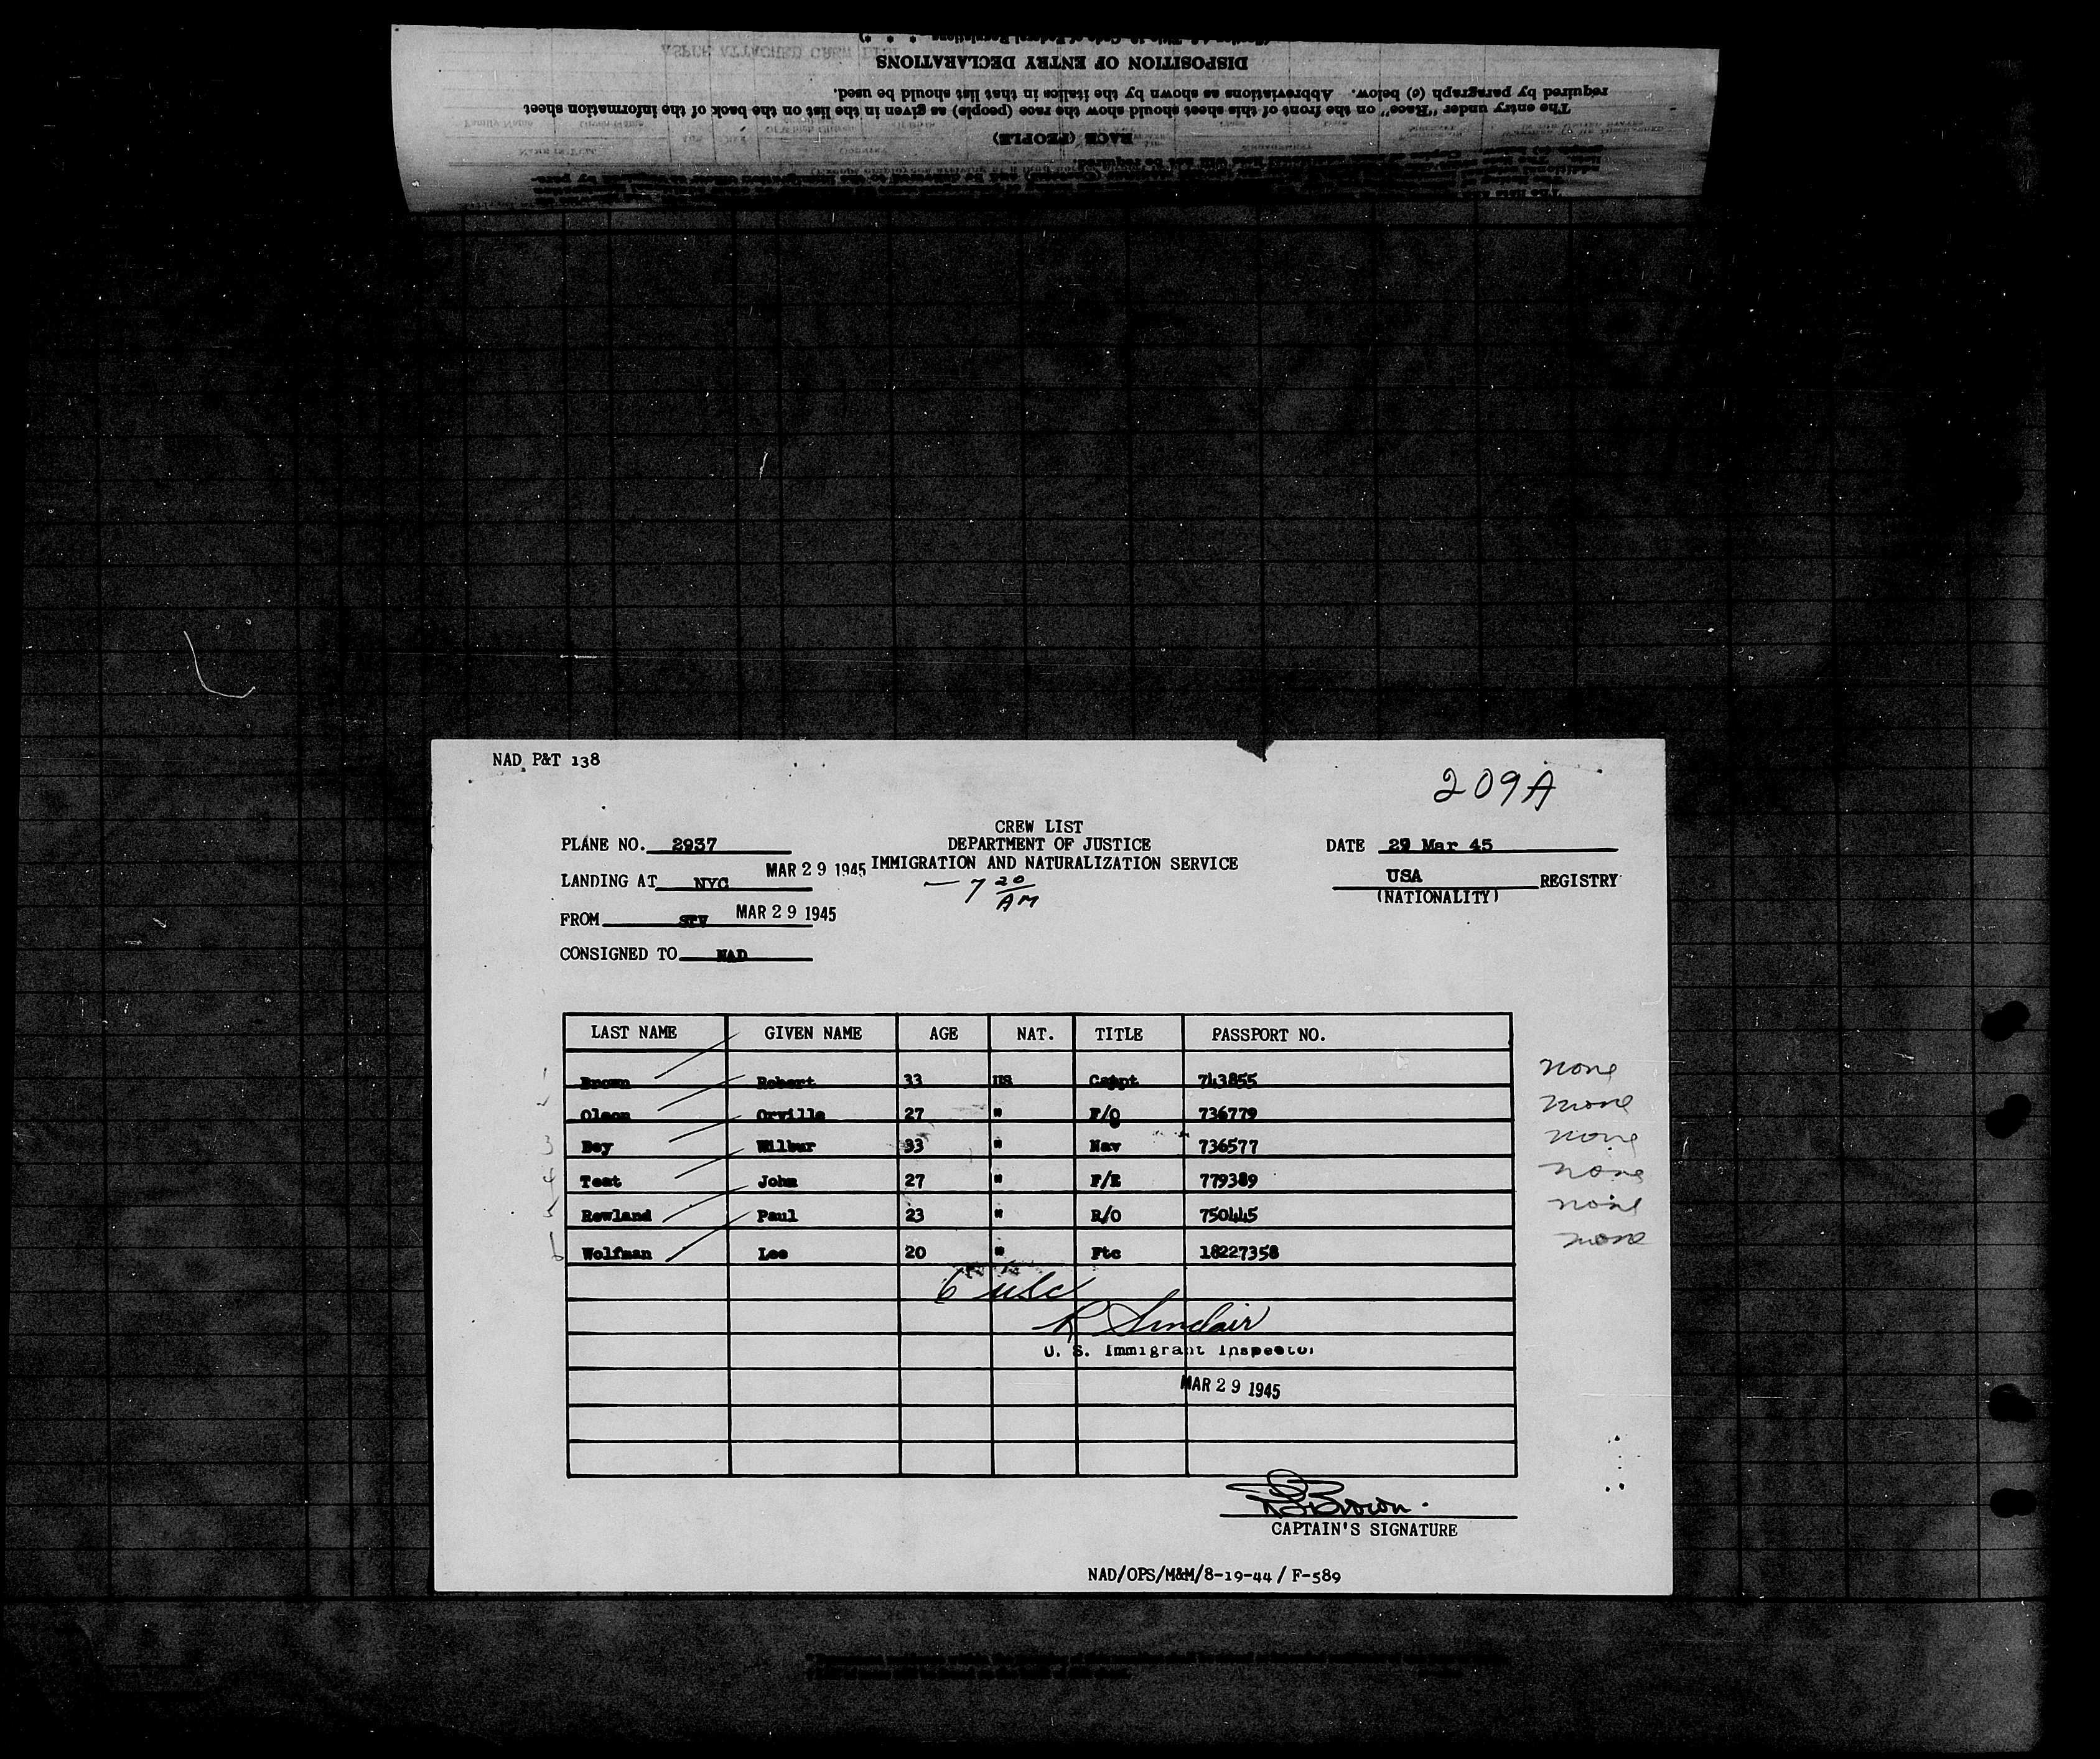 DISPOSITION OF ENTRY DECLARATIONS
required by paragraph (c) below. Abbreviations as shown by the italics in that list should be used.
The entry under "Race" on the front of this sheet should show the race (people) as given in the list on the back of the information sheet
RACE (PEOPLE)
NAD P&T 138
209A
CREW LIST
PLANE NO. 2937 DEPARTMENT OF JUSTICE DATE 29 Mar 45
MAR 29 1945 IMMIGRATION AND NATURALIZATION SERVICE
LANDING AT NYC — 7 20/AM USA REGISTRY
(NATIONALITY)
FROM STV MAR 29 1945
CONSIGNED TO NAD
LAST NAME GIVEN NAME AGE NAT. TITLE PASSPORT NO.
1 Brown Robert 33 US Capt 743855 none
2 Olson Orville 27 " F/O 736779 none
3 Bey Wilbur 33 " Nav 736577 none
4 Teat John 27 " F/E 779389 none
5 Rowland Paul 23 " R/O 750445 none
6 Wolfman Lee 20 " Ftc 18227358 none
6 usc
R Sinclair
U. S. Immigrant Inspector
MAR 29 1945
Brown.
CAPTAIN'S SIGNATURE
NAD/OPS/M&M/8-19-44 / F-589